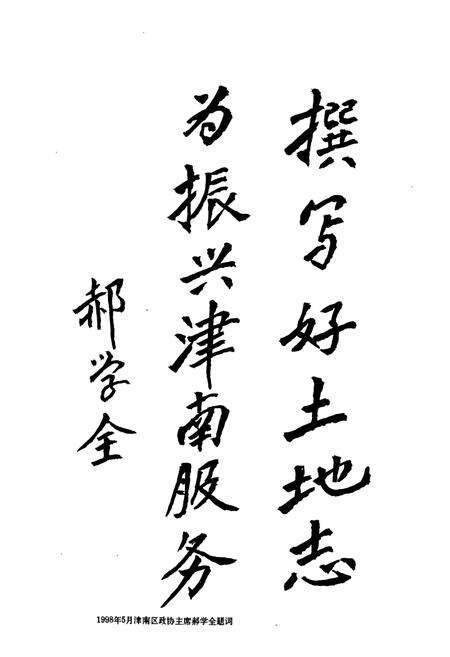 撰写好土地志
为振兴津南服务
郝学全
1998年5月津南区政协主席郝学全题词